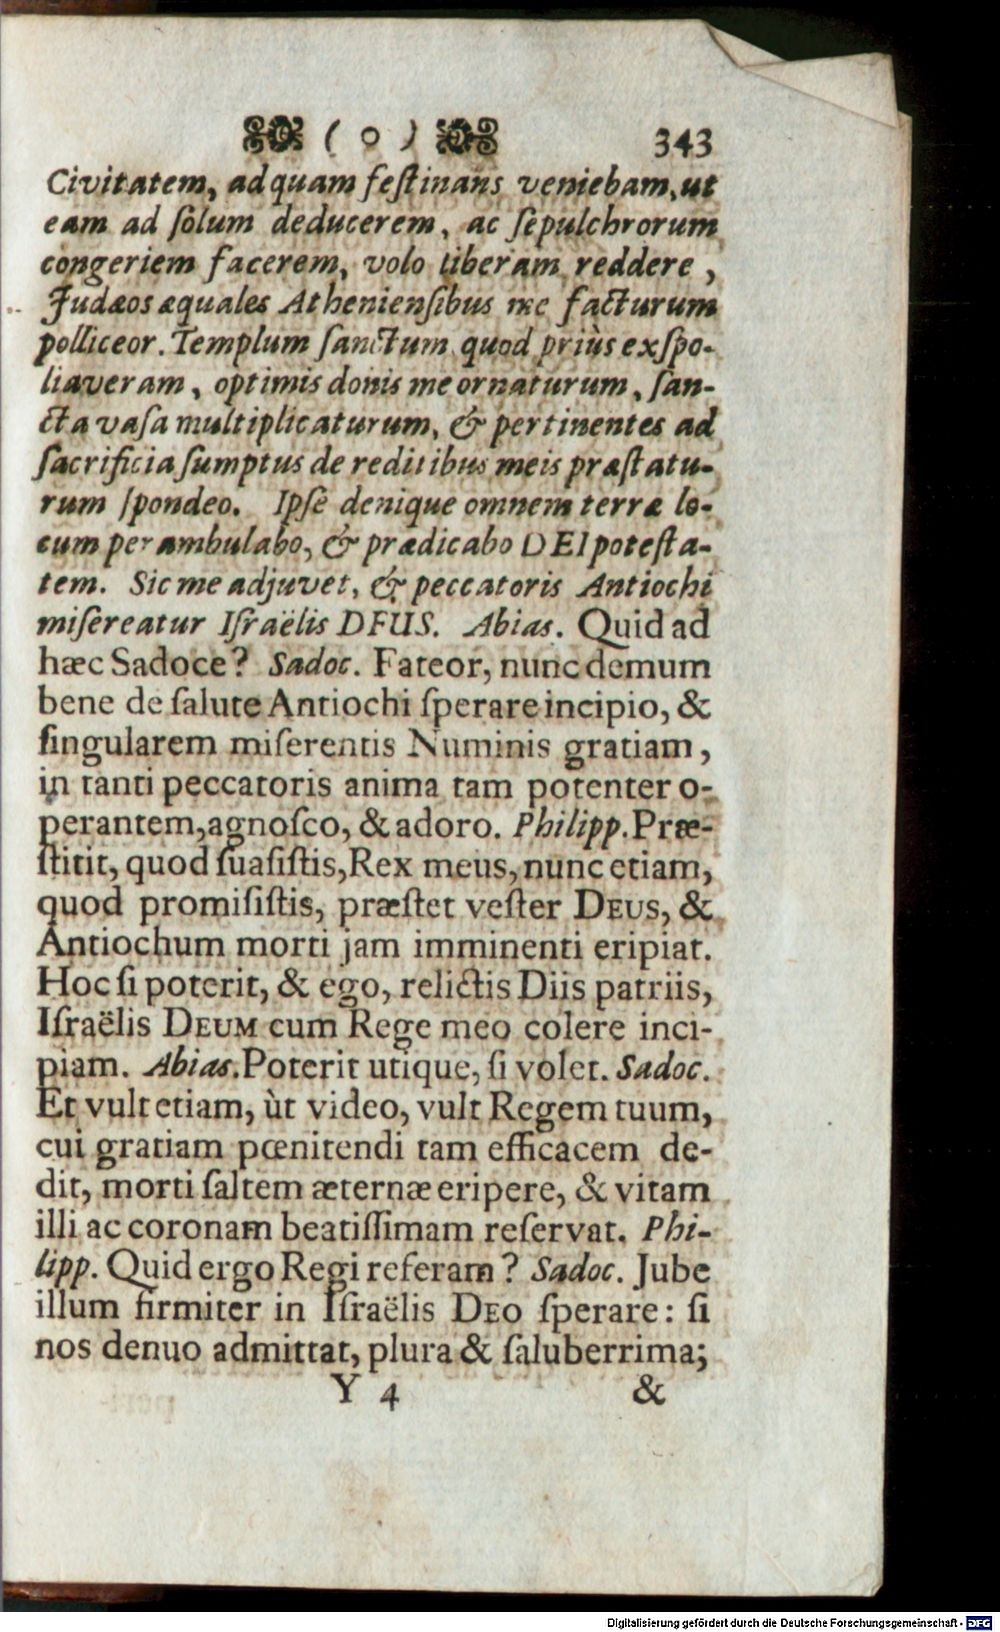 ( o ) 343
Civitatem, ad quam feſtinans veniebam, ut
eam ad ſolum deducerem, ac ſepulchrorum
congeriem facerem, volo liberam reddere,
Judæos æquales Athenienſibus me facturum
polliceor. Templum ſanctum quod priùs exſpo-
liaveram, optimis donis me ornaturum, ſan-
cta vaſa multiplicaturum, & pertinentes ad
ſacrificia ſumptus de reditibus meis præſtatu-
rum ſpondeo. Ipſe denique omnem terræ lo-
cum perambulabo, & prædicabo DEI poteſta-
tem. Sic me adjuvet, & peccatoris Antiochi
miſereatur Iſraëlis DEUS. Abias. Quid ad
hæc Sadoce? Sadoc. Fateor, nunc demum
bene de ſalute Antiochi ſperare incipio, &
ſingularem miſerentis Numinis gratiam,
in tanti peccatoris anima tam potenter o-
perantem, agnoſco, & adoro. Philipp. Præ-
ſtitit, quod ſuaſiſtis, Rex meus, nunc etiam,
quod promiſiſtis, præſtet veſter DEUS, &
Antiochum morti jam imminenti eripiat.
Hoc ſi poterit, & ego, relictis Diis patriis,
Iſraëlis DEUM cum Rege meo colere inci-
piam. Abias. Poterit utique, ſi volet. Sadoc.
Et vult etiam, ùt video, vult Regem tuum,
cui gratiam pœnitendi tam efficacem de-
dit, morti ſaltem æternæ eripere, & vitam
illi ac coronam beatiſſimam reſervat. Phi-
lipp. Quid ergo Regi referam? Sadoc. Jube
illum firmiter in Iſraëlis DEO ſperare: ſi
nos denuo admittat, plura & ſaluberrima;
Y 4 &
Digitalisierung gefördert durch die Deutsche Forschungsgemeinschaft - DFG